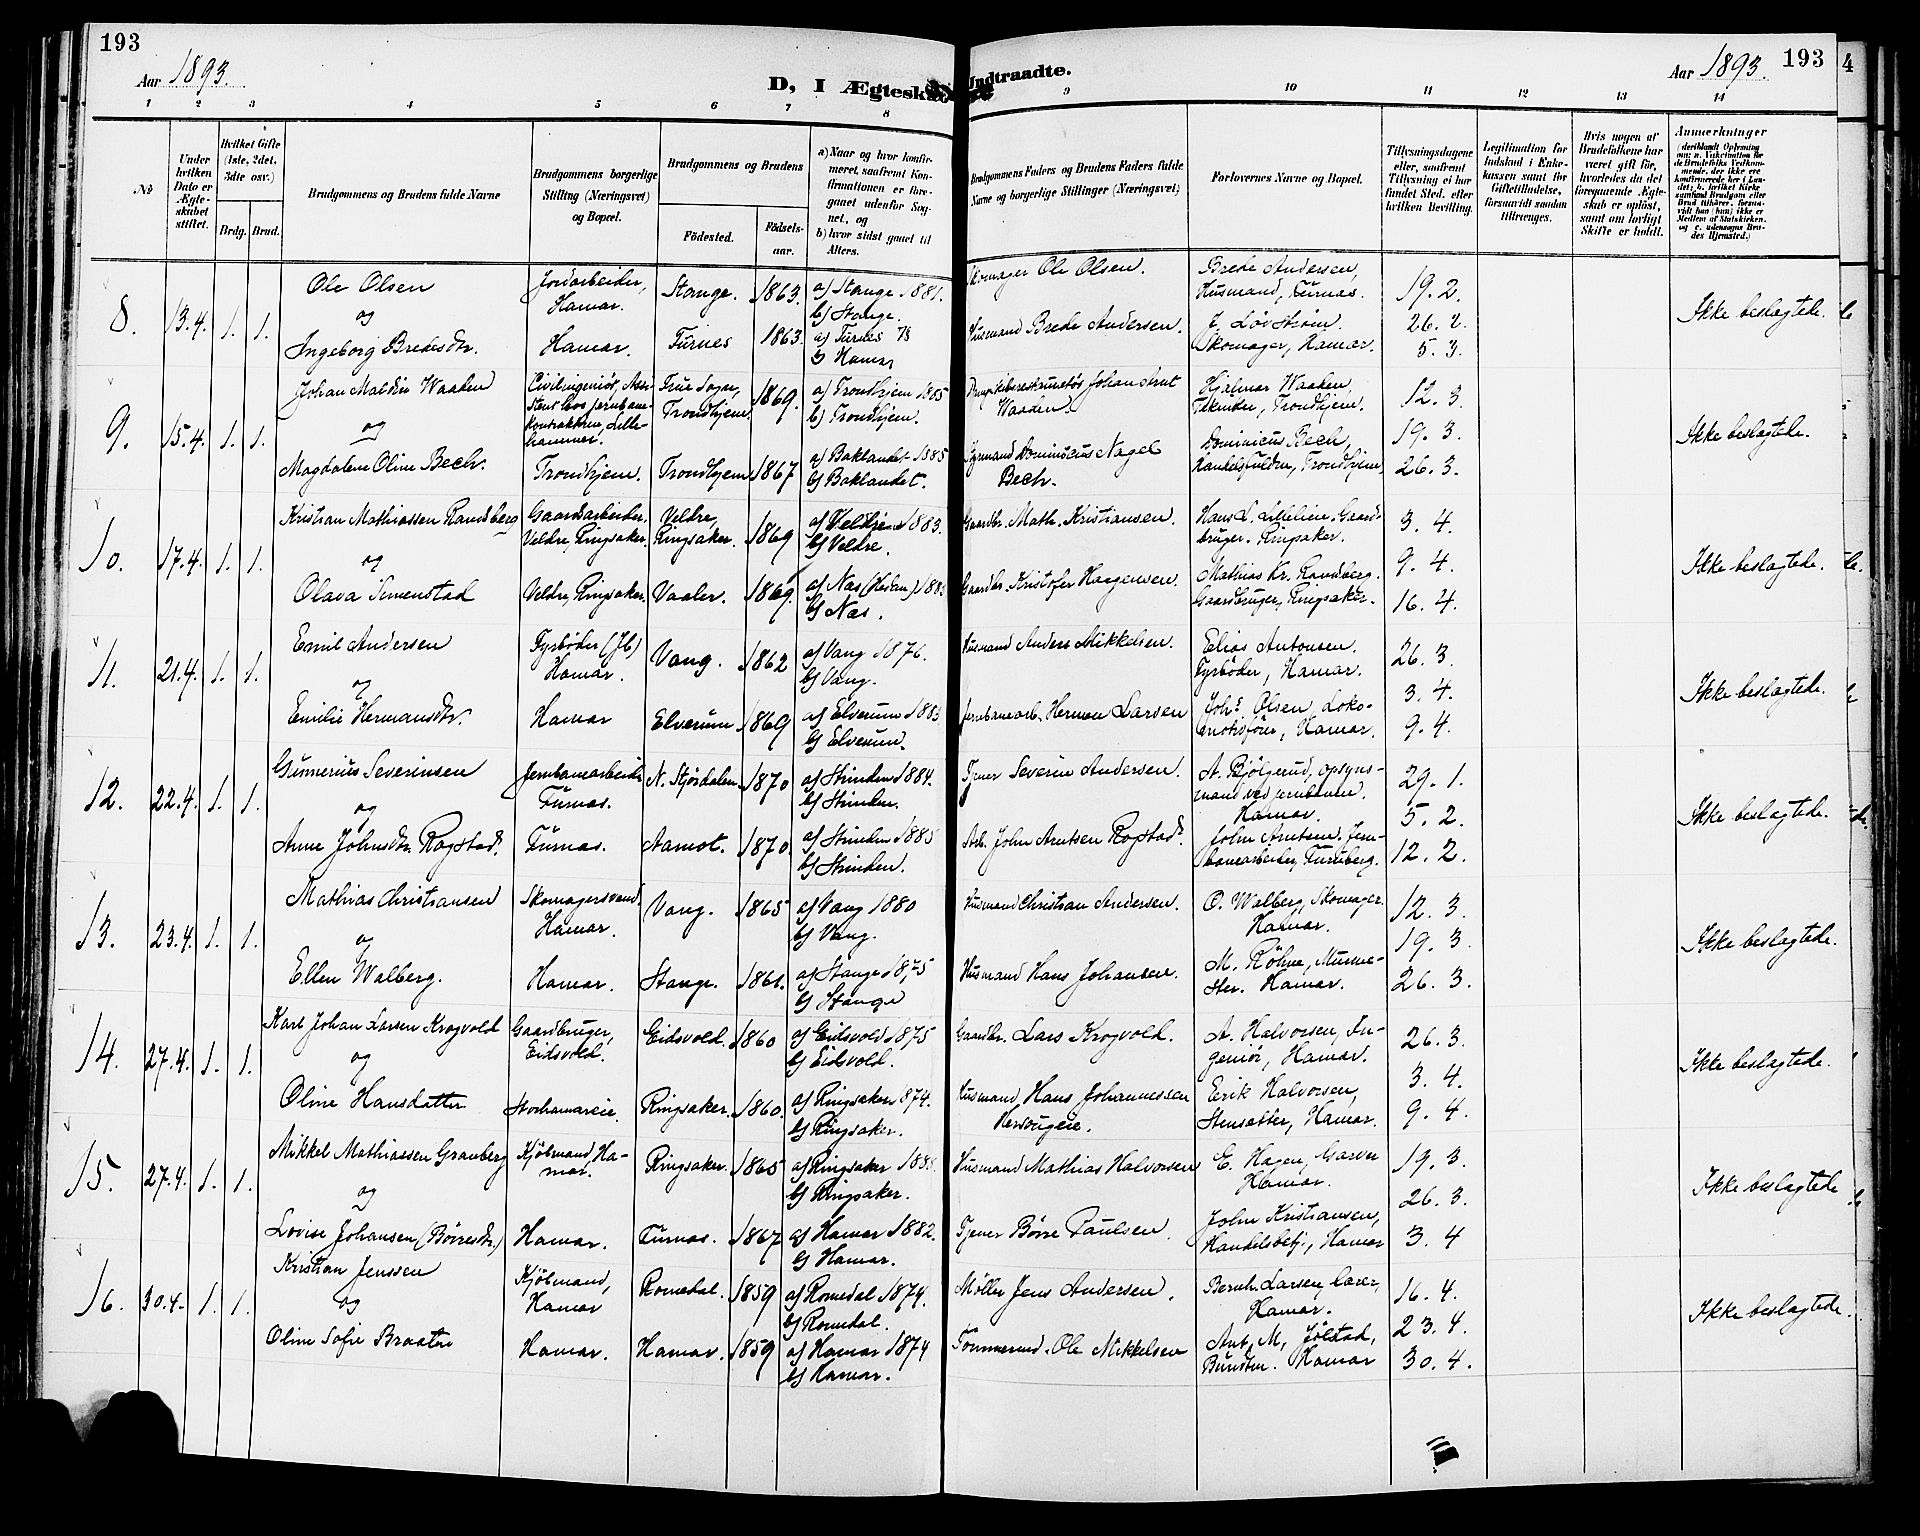 193
Aar 1893.
D, I Ægtesk
Indtraadte.
Aar 1893.
193
4
1 2 3 4 5 6 7 8 9 10 11 12 13 14
No
Under hvilken Dato er Ægteskabet stiftet.
Hvilket Gifte (1ste, 2det, 3dte osv.)
Brdg. Brud.
Brudgommens og Brudens fulde Navne
Brudgommens borgerlige Stilling (Næringsvei) og Bopæl.
Brudgommens og Brudens
Fødested.
Fødselsaar.
a) Naar og hvor konfirmeret, saafremt Konfirmationen er foregaaet udenfor Sognet, og
b) hvor sidst gaaet til Alters.
Brudgommens Faders og Brudens Faders fulde Navne og borgerlige Stillinger (Næringsvei)
Forlovernes Navne og Bopæl.
Tillysningsdagene eller, saafremt Tillysning ei har fundet Sted, efter hvilken Bevilling.
Legitimation for Indskud i Enkekassen samt for Giftetilladelse, forsaavidt saadan tiltrænges.
Hvis nogen af Brudefolkene har været gift før, hvorledes da det foregaaende Ægteskab er opløst, samt om lovligt Skifte er holdt.
Anmærkninger
8. 13.4. 1. 1.
Ole Olsen
og
Ingeborg Bredesdtr.
Jordarbeider, Hamar.
Hamar.
Stange. 1863.
Furnes 1863.
a) Stange 1881.
b) Stange.
a) Furnes 78
b) Hamar
Skomager Ole Olsen.
Husmand Brede Andersen.
Brede Andersen,
Husmand, Furnas.
J. Løvstrøm
Skomager, Hamar.
19. 2.
26. 2.
5. 3.
Ikke beslagtede.
9. 15.4. 1. 1.
Johan Waaden
og
Magdalene Oline Bech.
Civilingeniør, Assistent hos Jernbanekontrakten, Lillehammer.
Trondhjem.
Frue Sogn, Trondhjem 1869.
Trondhjem 1867
a) Trondhjem 1885
b) Trondhjem.
a) Baklandet 1885
b) Baklandet.
Johan Arnt Waaden.
Dominicus Nagel Bech.
Hjalmar Waaden,
Tekniker, Trondhjem.
Dominicus Bech,
Trondhjem
12. 3.
19. 3.
26. 3.
Ikke beslagtede.
10. 17.4. 1. 1.
Kristian Mathiassen Randsberg
og
Olava Simenstad
Gaardarbeider, Veldre, Ringsaker.
Veldre, Ringsaker.
Veldre, Ringsaker. 1869
Vaaler. 1869.
a) Veldre 1883.
b) Veldre.
a) Nas (Hedem.) 1883
b) Nas.
Gaardbr. Math. Kristiansen.
Gaardbr. Kristofer Haagensen.
Hans L. Lillelien, Gaardbruger. Ringsaker.
Mathias Kr. Randberg.
Gaardbruger, Ringsaker.
3. 4.
9. 4.
16. 4.
Ikke beslagtede.
11. 21.4. 1. 1.
Emil Andersen
og
Emilie Hermansdtr.
Fyrbøder (Jb)
Hamar.
Hamar
Vang. 1862
Elverum 1869
a) Vang 1876.
b) Vang.
a) Elverum 1883
b) Elverum.
Husmand Anders Mikkelsen.
Jernbanearb. Herman Larsen
Elias Antonsen.
Fyrbøder, Hamar.
Johs. Olsen, Lokomotivfører, Hamar.
26. 3.
3. 4.
9. 4.
Ikke beslagtede.
12. 22.4. 1. 1.
Gunnerius Severinsen
og
Anne Johnsdtr. Rogstad.
Jernbanearbeider
Furnas.
Furnas.
N. Stjørdalen 1870
Aamot. 1870.
a) Strinden 1884.
b) Strinden.
a) Strinden 1885
b) Strinden.
Tjener Severin Andersen.
Arb. John Arntsen Rogstad.
A. Bjølgerud, opsynsmand ved jernbanen.
Hamar.
John Arntsen. Jernbanearbeider, Furuberg.
29. 1.
5. 2.
12. 2.
Ikke beslagtede.
13. 23.4. 1. 1.
Mathias Christiansen
og
Ellen Walberg.
Skomagersvend.
Hamar.
Hamar.
Vang. 1865
Stange. 1861.
a) Vang 1880
b) Vang.
a) Stange 1875
b) Stange
Husmand Christian Andersen.
Husmand Hans Johansen.
O. Walberg, Skomager.
Hamar.
M. Røhne, Murmester. Hamar.
12. 3.
19. 3
26. 3.
Ikke beslagtede.
14. 27.4. 1. 1.
Karl Johan Larsen Krogvold
og
Oline Hansdatter
Gaardbruger,
Eidsvold.
Storhamareie.
Eidsvold. 1860
Ringsaker. 1860.
a) Eidsvold 1875
b) Eidsvold.
a) Ringsaker 1874.
b) Ringsaker.
Gaardbr. Lars Krogvold.
Husmand, Hans Johannessen
A. Halvorsen, Ingeniør, Hamar.
Erik Halvorsen,
Stensætter, Hamar.
26. 3.
3. 4.
9. 4.
Ikke beslagtede.
15. 27.4. 1. 1.
Mikkel Mathiassen Granberg
og
Lovise Johansen (Børresdtr.)
Kjøbmand, Hamar.
Hamar.
Ringsaker. 1865
Furnas. 1867
a) Ringsaker
b) Ringsaker.
a) Hamar 1882.
b) Hamar.
Husmand Mathias Halvorsen
Tjener Børre Paulsen.
E. Hagen, Garver
Hamar.
John Kristiansen,
Handelsbetj., Hamar
19. 3.
26. 3.
3. 4
Ikke beslagtede
16. 30.4. 1. 1.
Kristian Jenssen
og
Oline Sofie Braaten
Kjøbmand,
Hamar
Hamar.
Romedal. 1859
Hamar. 1859
a) Romedal 1874.
b) Romedal.
a) Hamar 1874
b) Hamar.
Møller Jens Andersen.
Tømmermd. Ole Mikkelsen
Bernh. Larsen,
Hamar.
Ant. M. Jølstad,
Hamar
16. 4.
23. 4.
30. 4.
Ikke beslagtede.